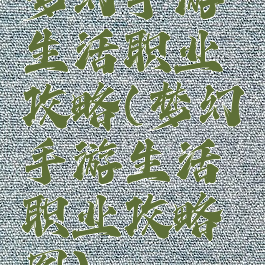 梦幻手游
生活职业
攻略(梦幻
手游生活
职业攻略